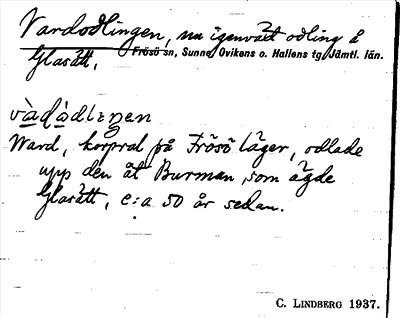 Vardodlingen, nu igenväxt odling å
Frösö sn, Sunne, Ovikens o. Hallens tg Jämtl. län.
Glasätt,
vàdàdlıŋen
Ward, korpral på Frösö läger, odlade
upp den åt Burman, som ägde
Glasätt, c:a 50 år sedan.
C. LINDBERG 1937.